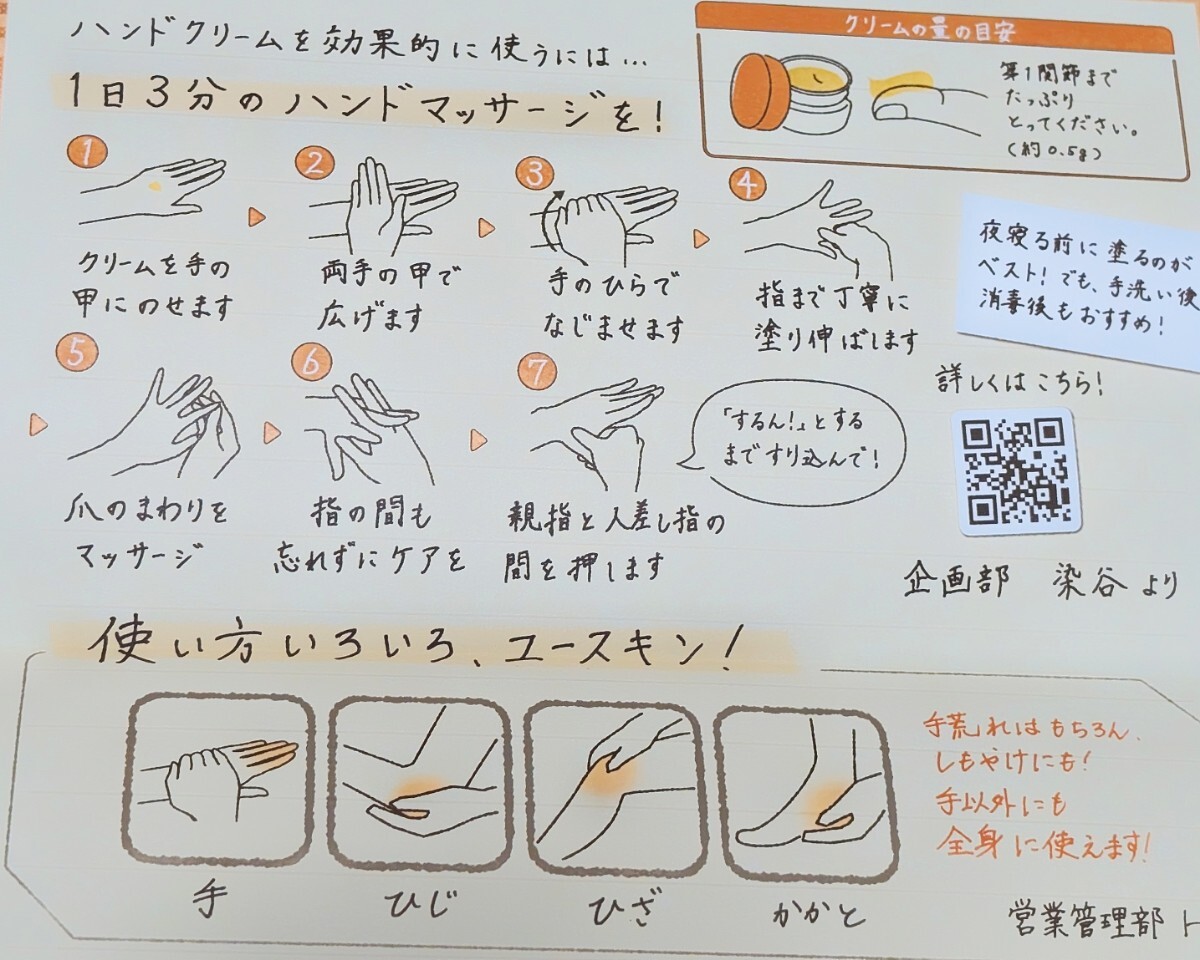 ハンドクリームを効果的に使うには…
1日3分のハンドマッサージを!
クリームの量の目安
第1関節まで
たっぷり
とってください。
(約0.5g)
1
クリームを手の
甲にのせます
2
両手の甲で
広げます
3
手のひらで
なじませます
4
指まで丁寧に
塗り伸ばします
夜寝る前に塗るのが
ベスト!でも、手洗い後
消毒後もおすすめ!
5
爪のまわりを
マッサージ
6
指の間も
忘れずにケアを
7
親指と人差し指の
間を押します
「するん!」とする
まですり込んで!
詳しくはこちら!
企画部 染谷より
使い方いろいろ、ユースキン!
手
ひじ
ひざ
かかと
手荒れはもちろん、
しもやけにも!
手以外にも
全身に使えます!
営業管理部